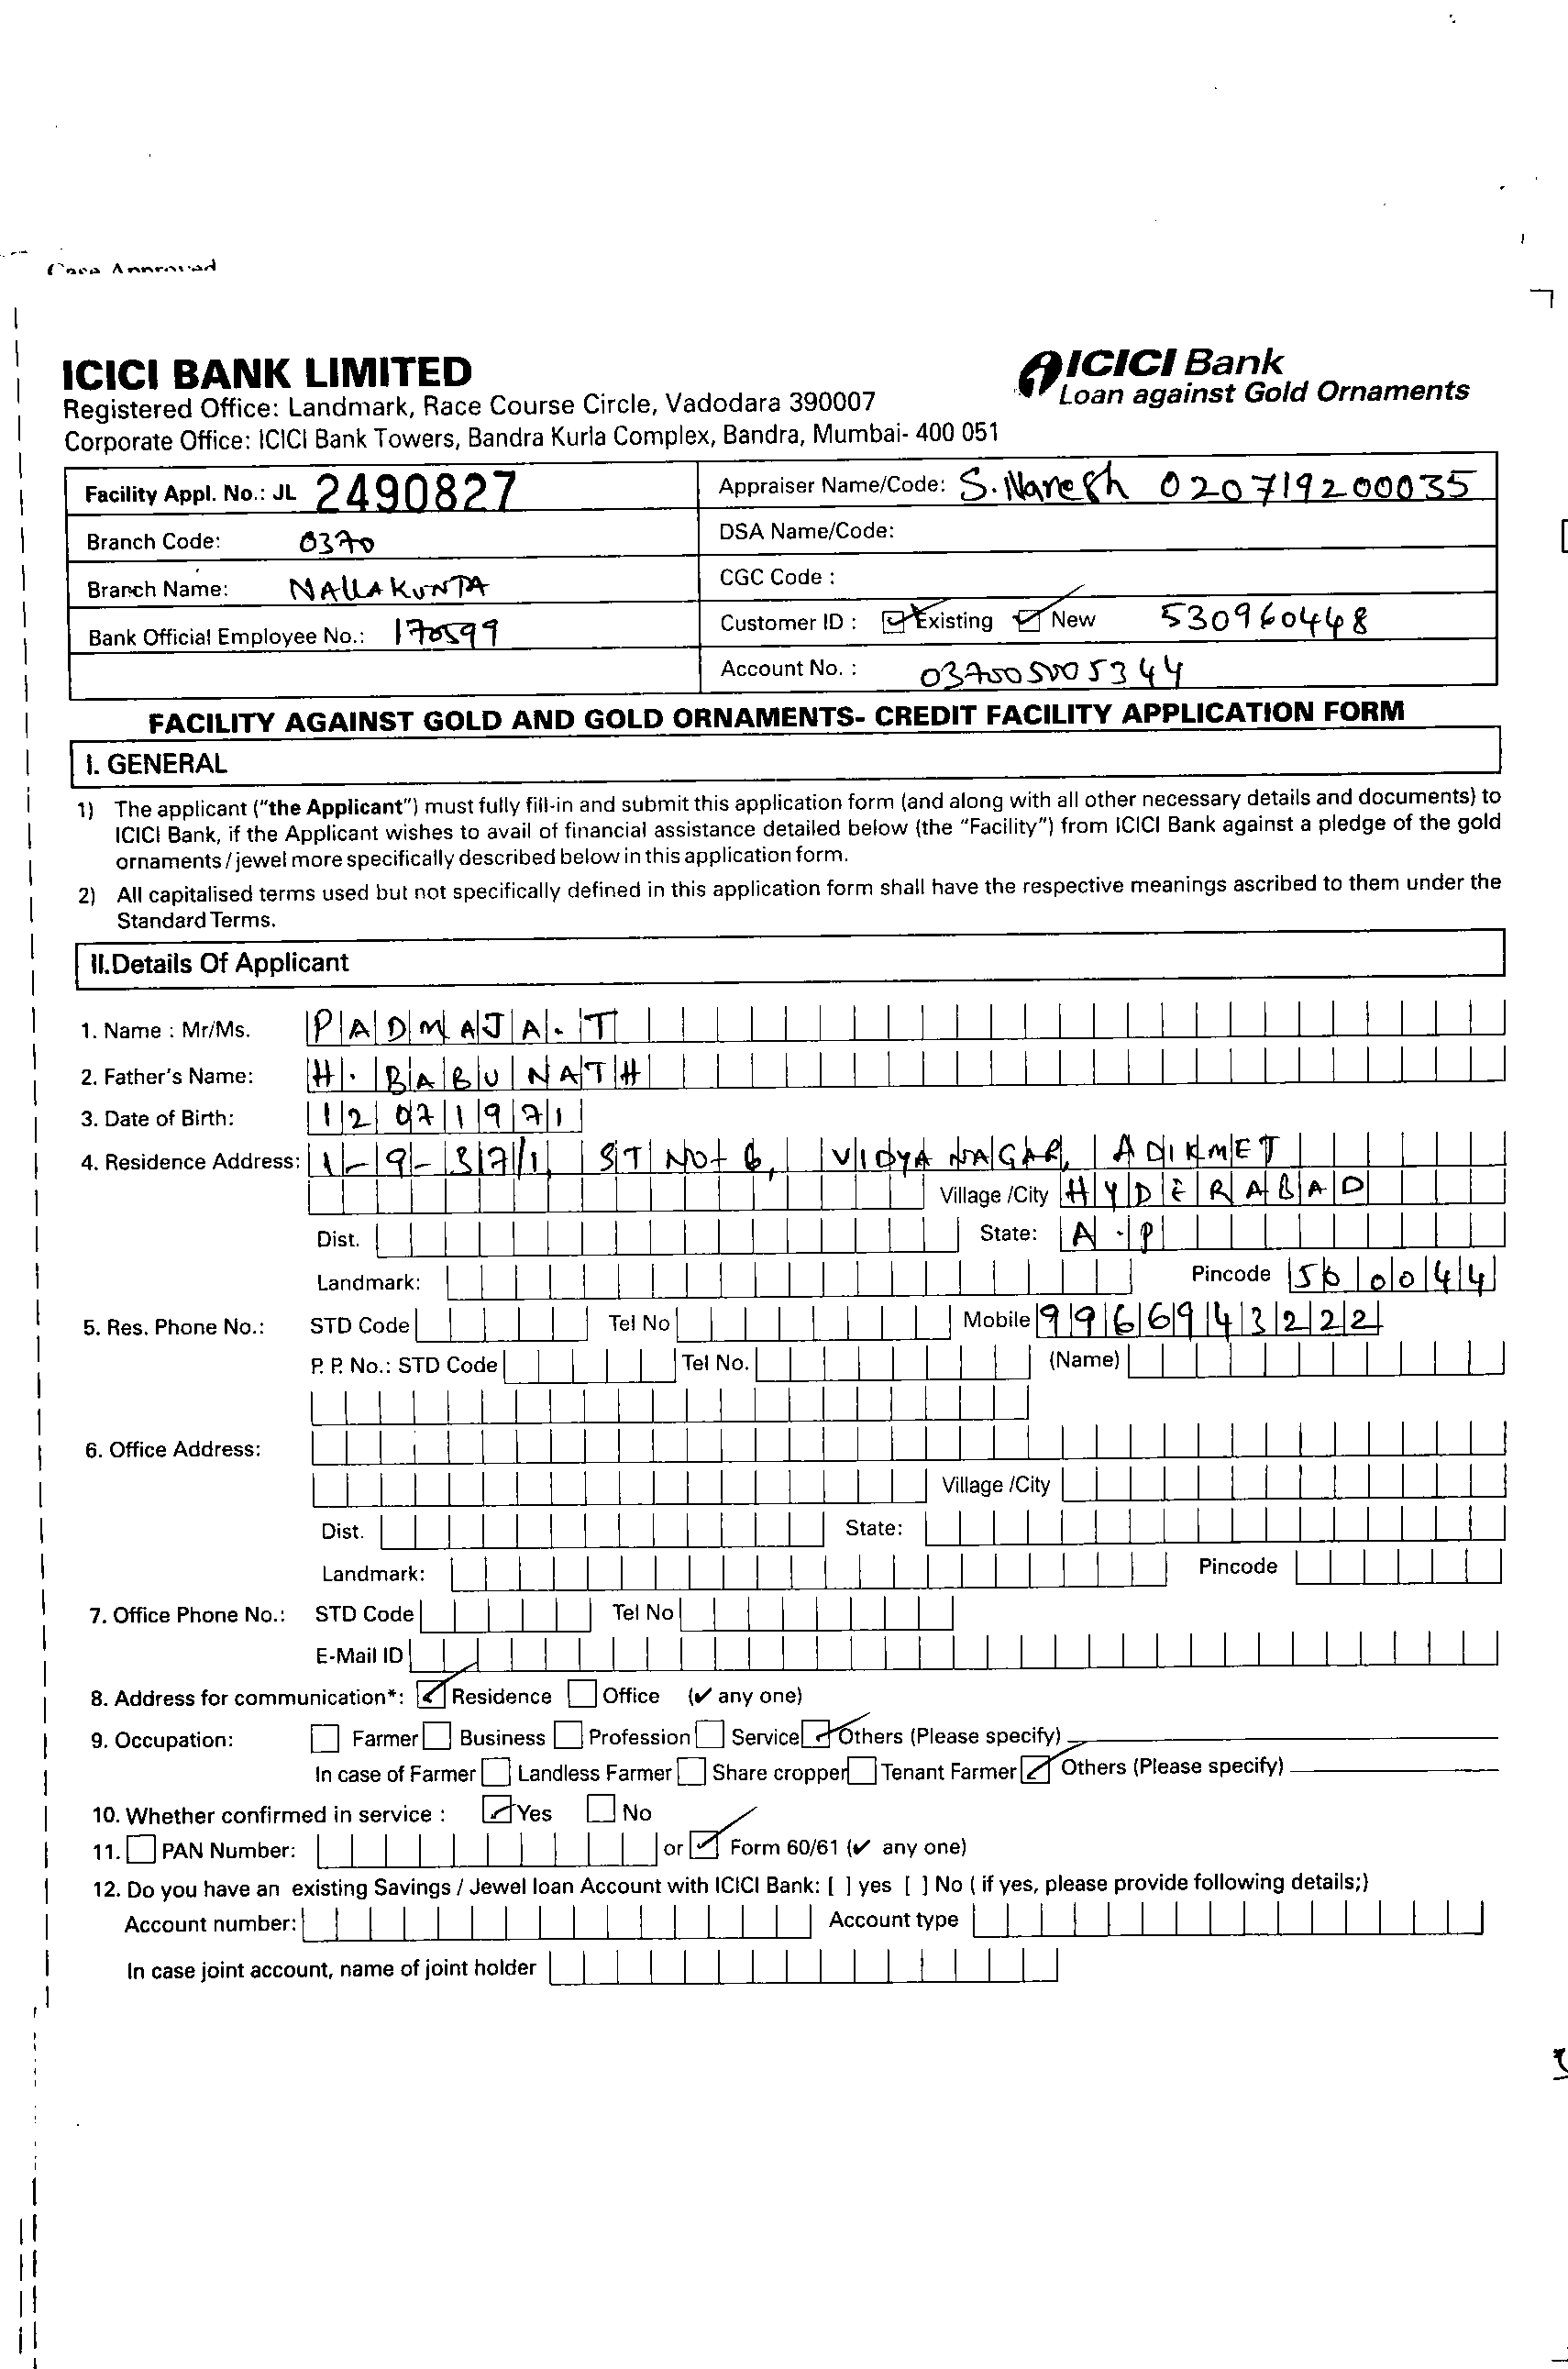 Case Approved
ICICI BANK LIMITED
ICICI Bank
Loan against Gold Ornaments
Registered Office: Landmark, Race Course Circle, Vadodara 390007
Corporate Office: ICICI Bank Towers, Bandra Kurla Complex, Bandra, Mumbai- 400 051
Facility Appl. No.: JL 2490827 Appraiser Name/Code: S. Naresh 020719200035
Branch Code: 0370 DSA Name/Code:
Branch Name: NALLAKUNTA CGC Code :
Bank Official Employee No.: 170599 Customer ID : Existing New 530960448
Account No. : 037005005344
FACILITY AGAINST GOLD AND GOLD ORNAMENTS- CREDIT FACILITY APPLICATION FORM
I. GENERAL
1) The applicant ("the Applicant") must fully fill-in and submit this application form (and along with all other necessary details and documents) to
ICICI Bank, if the Applicant wishes to avail of financial assistance detailed below (the "Facility") from ICICI Bank against a pledge of the gold
ornaments / jewel more specifically described below in this application form.
2) All capitalised terms used but not specifically defined in this application form shall have the respective meanings ascribed to them under the
Standard Terms.
II.Details Of Applicant
1. Name : Mr/Ms. PADMAJA. T
2. Father's Name: H. BABU NATH
3. Date of Birth: 12 07 1971
4. Residence Address: 1-9-371, ST NO+ 6, VIDYA NAGAR, ADIKMET
Village /City HYDERABAD
Dist. State: A.P
Landmark: Pincode 500044
5. Res. Phone No.: STD Code Tel No Mobile 9966943222
P. P. No.: STD Code Tel No. (Name)
6. Office Address:
Village /City
Dist. State:
Landmark: Pincode
7. Office Phone No.: STD Code Tel No
E-Mail ID
8. Address for communication*: ✓ Residence Office (✔ any one)
9. Occupation: Farmer Business Profession Service ✓ Others (Please specify)
In case of Farmer Landless Farmer Share cropper Tenant Farmer ✓ Others (Please specify)
10. Whether confirmed in service : ✓ Yes No
11. PAN Number: or ✓ Form 60/61 (✔ any one)
12. Do you have an existing Savings / Jewel loan Account with ICICI Bank: [ ] yes [ ] No ( if yes, please provide following details;)
Account number: Account type
In case joint account, name of joint holder